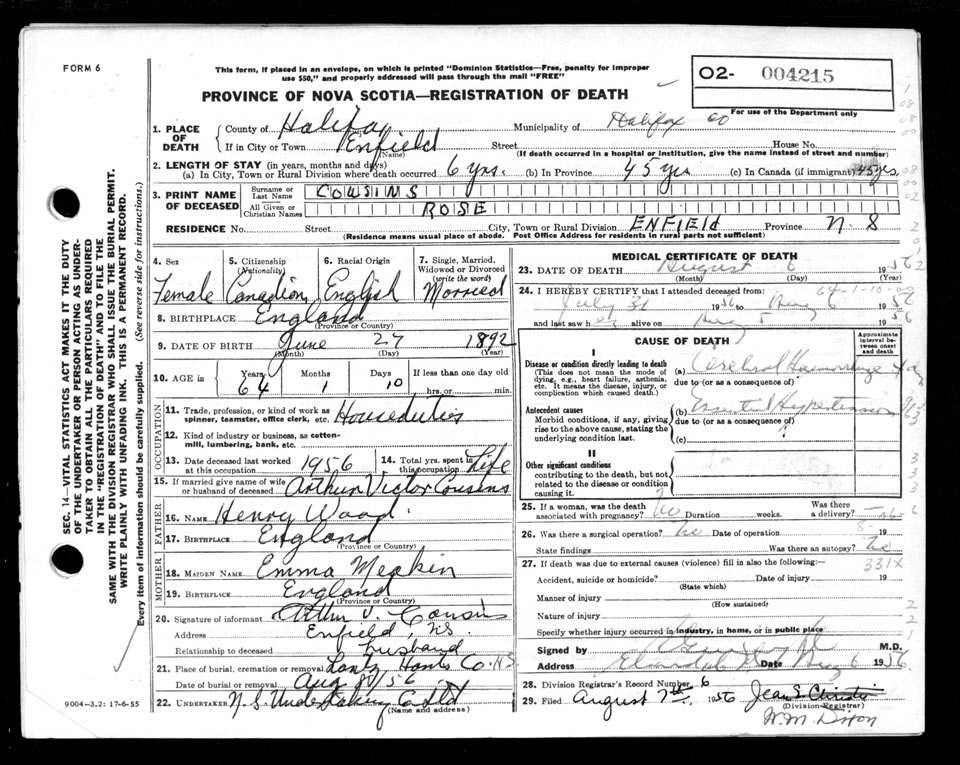 FORM 6
This form, if placed in an envelope, on which is printed "Dominion Statistics—Free, penalty for improper
use $50," and properly addressed will pass through the mail "FREE"
O2- 004215
For use of the Department only
PROVINCE OF NOVA SCOTIA—REGISTRATION OF DEATH
1. PLACE OF DEATH
County of Halifax Municipality of Halifax Co
If in City or Town Enfield Street House No.
(Name) (If death occurred in a hospital or institution, give the name instead of street and number)
2. LENGTH OF STAY (in years, months and days)
(a) In City, Town or Rural Division where death occurred 6 yrs. (b) In Province 45 yrs (c) In Canada (if immigrant) 45 yrs,
3. PRINT NAME OF DECEASED
Surname or Last Name COUSINS
All Given or Christian Names ROSE
RESIDENCE No. Street City, Town or Rural Division ENFIELD Province N.S
(Residence means usual place of abode. Post Office Address for residents in rural parts not sufficient)
4. Sex Female
5. Citizenship (Nationality) Canadian
6. Racial Origin English
7. Single, Married, Widowed or Divorced (write the word) Married
8. BIRTHPLACE England
(Province or Country)
9. DATE OF BIRTH June 27 1892
(Month) (Day) (Year)
10. AGE in Years 64 Months 1 Days 10 If less than one day old
hrs. or min.
OCCUPATION
11. Trade, profession, or kind of work as
spinner, teamster, office clerk, etc. Houseduties
12. Kind of industry or business, as cotton-
mill, lumbering, bank, etc.
13. Date deceased last worked at this occupation 1956
14. Total yrs. spent in this occupation Life
15. If married give name of wife or husband of deceased Arthur Victor Cousins
FATHER
16. NAME Henry Wood
17. BIRTHPLACE England
(Province or Country)
MOTHER
18. MAIDEN NAME Emma Meakin
19. BIRTHPLACE England
(Province or Country)
20. Signature of informant Arthur V. Cousins
Address Enfield, N.S.
Relationship to deceased husband
21. Place of burial, cremation or removal Lantz Hants Co. N.S
Date of burial or removal Aug 8/56
22. UNDERTAKER N.S. Undertaking Co Ltd
(Name and address)
9004—3.2: 17-6-55
MEDICAL CERTIFICATE OF DEATH
23. DATE OF DEATH August 6 1956
(Month) (Day) (Year)
24. I HEREBY CERTIFY that I attended deceased from:
July 31 1956 to Aug 6 1956
and last saw her alive on Aug 5 1956
CAUSE OF DEATH
Approximate interval between onset and death
I
Disease or condition directly leading to death (a) Cerebral Haemorrhage
(This does not mean the mode of dying, e.g., heart failure, asthenia, etc. It means the disease, injury, or complication which caused death.)
due to (or as a consequence of)
Antecedent causes (b) Essential Hypertension
Morbid conditions, if any, giving rise to the above cause, stating the underlying condition last.
due to (or as a consequence of)
(c)
II
Other significant conditions
contributing to the death, but not related to the disease or condition causing it.
25. If a woman, was the death associated with pregnancy? No Duration weeks. Was there a delivery?
26. Was there a surgical operation? No Date of operation 19
State findings Was there an autopsy? No
27. If death was due to external causes (violence) fill in also the following:— 331X
Accident, suicide or homicide? Date of injury 19
(State which)
Manner of injury
(How sustained)
Nature of injury
Specify whether injury occurred in industry, in home, or in public place
Signed by M.D.
Address Date Aug 6 1956.
28. Division Registrar's Record Number 6
29. Filed August 7th, 1956 Jean E. Christie
(Division Registrar)
W.M. Dixon
SEC. 14—VITAL STATISTICS ACT MAKES IT THE DUTY
OF THE UNDERTAKER OR PERSON ACTING AS UNDER-
TAKER TO OBTAIN ALL THE PARTICULARS REQUIRED
IN THE "REGISTRATION OF DEATH" AND TO FILE THE
SAME WITH THE DIVISION REGISTRAR WHO SHALL ISSUE THE BURIAL PERMIT.
WRITE PLAINLY WITH UNFADING INK. THIS IS A PERMANENT RECORD.
Every item of information should be carefully supplied. (See reverse side for instructions.)